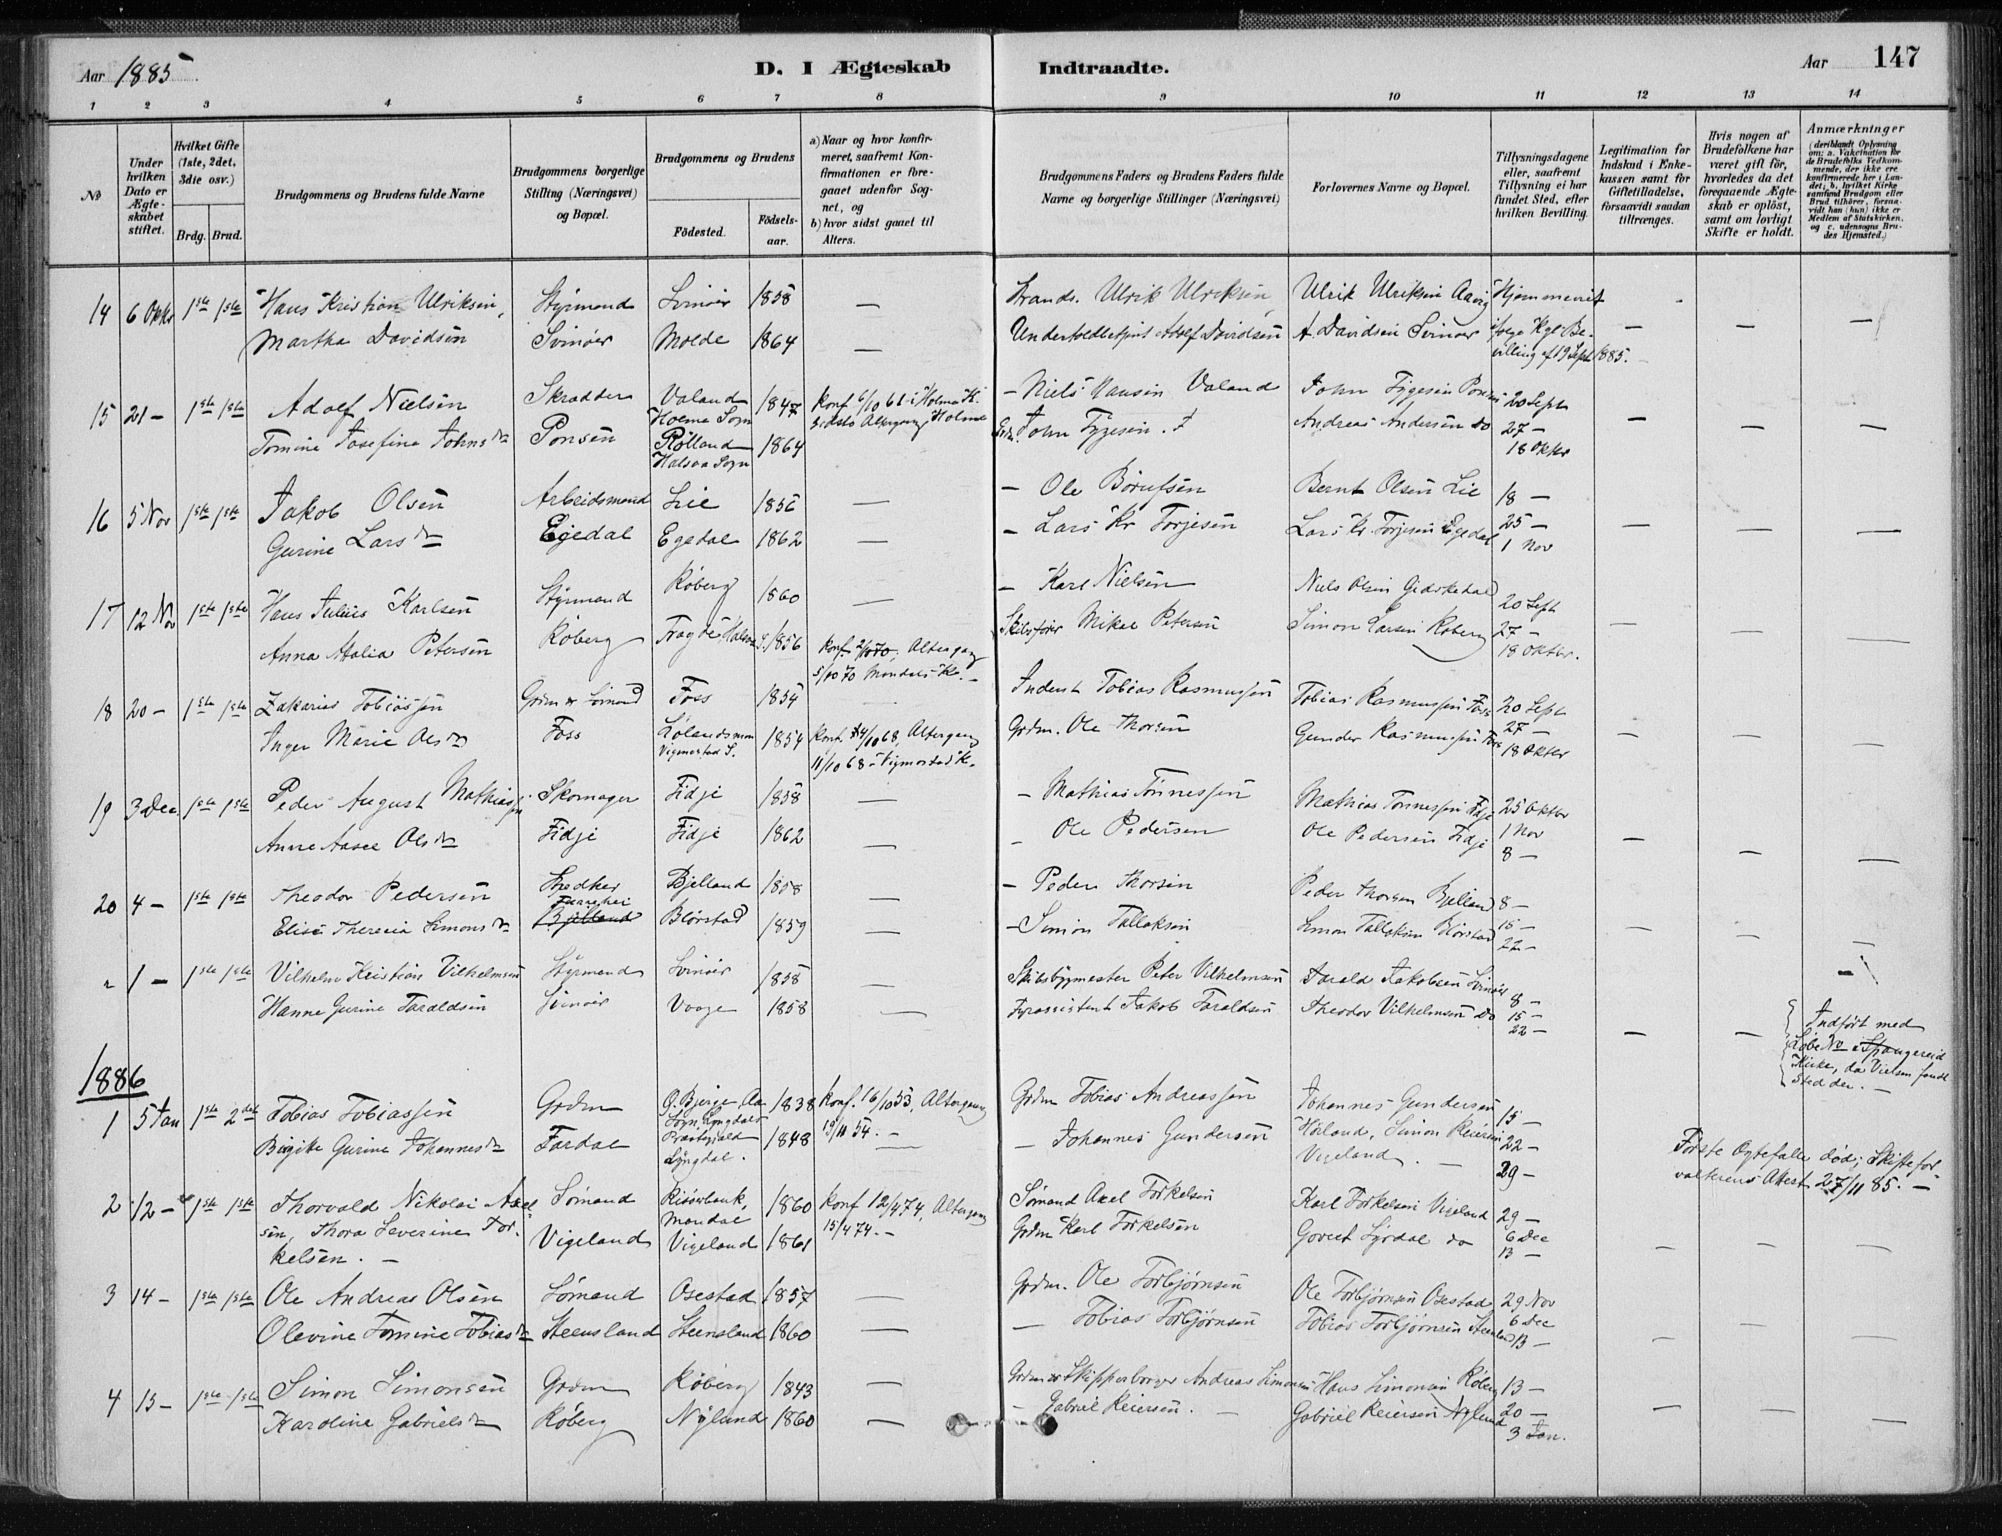 Aar 1885.
D. I Ægteskab Indtraadte.
Aar 147
1 2 3 4 5 6 7 8 9 10 11 12 13 14
№
Under hvilken Dato er Ægteskabet stiftet.
Hvilket Gifte (1ste, 2det, 3die osv.)
Brdg. Brud.
Brudgommens og Brudens fulde Navne
Brudgommens borgerlige Stilling (Næringsvei) og Bopæl.
Brudgommens og Brudens
Födested.
Födsels-aar.
a) Naar og hvor konfirmeret, saafremt Konfirmationen er foregaaet udenfor Sognet, og
b) hvor sidst gaaet til Alters.
Brudgommens Faders og Brudens Faders fulde Navne og borgerlige Stillinger (Næringsvei)
Forlovernes Navne og Bopæl.
Tillysningsdagene eller, saafremt Tillysning ei har fundet Sted, efter hvilken Bevilling.
Legitimation for Indskud i Enkekassen samt for Giftetilladelse, forsaavidt saadan tiltrænges.
Hvis nogen af Brudefolkene har været gift för, hvorledes da det foregaaende Ægteskab er oplöst, samt om lovligt Skifte er holdt.
Anmærkninger (deriblandt Oplysning om: a. Vakcination for de Brudefolks Vedkommende, der ikke ere konfirmerede her i Landet; b. hvilket Kirkesamfund Brudgom eller Brud tilhörer, forsaavidt han (hun) ikke er Medlem af Statskirken, og c. udensogns Brudes Hjemsted.)
14 6 Oktr 1ste 1ste Hans Kristian Ulriksen, Styrmand Svinöer 1858 — Strands. Ulrik Ulriksen, Ulrik Ulriksen Aavig Hjemmeviet
Martha Davidsen Svinöer Molde 1864 — Adolf Davidsen A. Davidsen Svinöer ifølge Kgl Bevilling af 19 Sept 1885. — — —
15 21 — 1ste 1ste Adolf Nielsen Skrædder Valand Holme Sogn 1847 Konf 6/10 61 i Holme K. sidste Altergang Holme — Niels Hansen Valand John Tygesen Ponsen 20 Sept
Tomine Josefine Johnsdtr Ponsen Rölland Halsaa Sogn 1864 Grdm. John Tygesen. † Andreas Andersen do 27 — 18 Oktbr — — —
16 5 Nov 1ste 1ste Jakob Olsen Arbeidsmand Lie 1856 — — Ole Börufsen Bernt Olsen Lie 18 —
Gurine Larsdtr Egedal Egedal 1862 — — Lars Kr Torjesen Lars Kr. Torjesen Egedal 25 — 1 Nov — — —
17 12 Nov 1ste 1ste Hans Julius Karlsen Styrmand Köberg 1860 — — Karl Nielsen Niels Olsen Gidskedal 20 Sept
Anna Atalia Petersen Köberg 1856 Konf. Altergang 5/10 70 Mandals K. — Skibsförer Mikal Petersen Simon Larsen Köberg 27 — 18 Oktbr. — — —
18 20 — 1ste 1ste Zakarias Tobiassen Grdm & Sömand Foss 1854 Inderst Tobias Rasmussen Tobias Rasmussen Foss 20 Sept
Inger Marie Olsdtr Foss Vigmostad S. 1854 Konf. 4/10 68, Altergang 11/10 68 i Vigmostad K. Grdm. Ole Thorsen Gunder Rasmussen Foss 27 — 18 Oktbr — — —
19 3 Dec. 1ste 1ste Peder August Mathiassen Skomager Fidje 1858 — — Mathias Tönnessen Mathias Tönnessen Fidje 25 Oktbr
Anne Aasee Olsdtr Fidje Fidje 1862 — — Ole Pedersen Ole Pedersen Fidje 1 Nov 8 — — — —
20 4 — 1ste 1ste Theodor Pedersen Snedker Bjelland 1858 — — Peder Thorsen Peder Thorsen Bjelland 8 —
Elise Theresia Simonsdtr Bjelland Blörstad 1859 — — Simon Tallaksen Simon Tallaksen Blörstad 15 — 22 — — — —
1 — 1ste 1ste Vilhelm Kristian Vilhelmsen Styrmand Svinöer 1858 — Skibsbygmester Peter Vilhelmsen Tarald Jakobsen Svinöer 8 — —
Hanne Gurine Taraldsen Svinöer Vaage 1858 — Fyrassistent Jakob Taraldsen Theodor Vilhelmsen do 15 — 22 — — — Indfört med Löbe No i Spangereid Kirke, da Vielsen fandt Sted der. —
1886
1 5 Jan 1ste 2det Tobias Tobiassen Grdm 1838 Konf. 16/10 53, Altergang Grdm Tobias Andreassen Johannes Gundersen 15 —
Birgitte Gurine Johannesdtr Fardal Lyngdal. 1848 — Johannes Gundersen Hörland, Simon Reiersen Vigeland. — 22 — 29 — Förste Ægtefælle död; Skifteforvalterens Attest 27/11 85. —
2 12 — 1ste 1ste Thorvald Nikolai Axelsen, Sömand Risöbank, Mandal 1860 Konf 12/4 74, Altergang 15/4 74. — Sömand Axel Torkelsen Karl Torkelsen Vigeland 29 —
Thora Severine Torkelsen. — Vigeland Vigeland 1861 Grdm Karl Torkelsen Govert Syrdal do 6 Dec 13 — — — —
3 14 — 1ste 1ste Ole Andreas Olsen Sömand Osestad 1857 — Grdm. Ole Torbjörnsen Ole Torbjörnsen Osestad 29 Nov
Olevine Tomine Tobiasdtr Steensland Steensland 1860 — — Tobias Torbjörnsen Tobias Torbjörnsen Steensland 6 Dec 13 — — — —
4 15 — 1ste 1ste Simon Simonsen Grdm Köberg 1843 — Grdm & Skipperborger Andreas Simonsen Hans Simonsen Köberg 13 —
Karoline Gabrielsdtr Köberg Nÿland 1860 — — Gabriel Reiersen. — Gabriel Reiersen Nyland 20 — 3 Jan. — — —